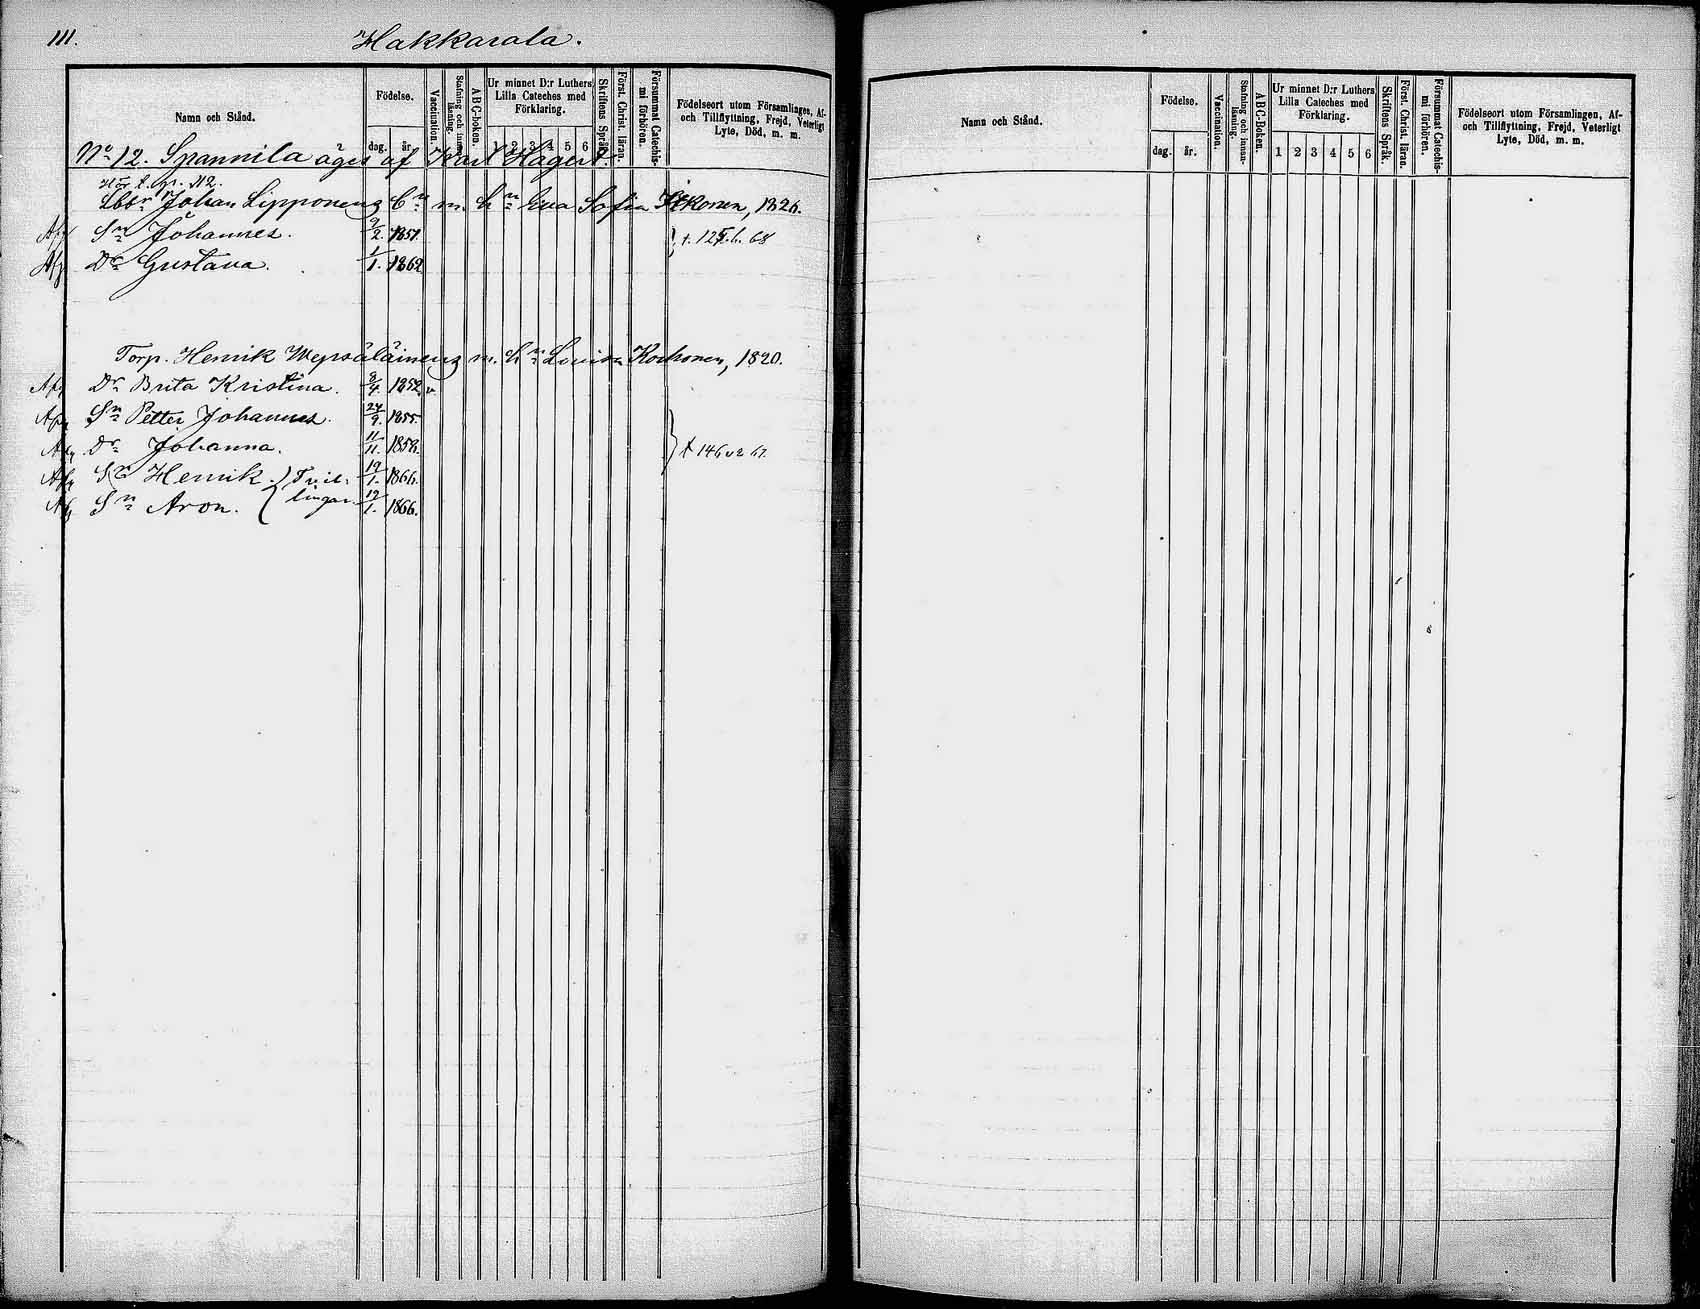 111.
Hakkarala.
Namn och Stånd.
Födelse.
dag. år.
Vaccination.
Stafning och innan-läsning.
ABC-boken.
Ur minnet D:r Luthers Lilla Cateches med Förklaring.
1 2 3 4 5 6
Skriftens Språk.
Först. Christ. läran.
Försummat Catechis-mi förhören.
Födelseort utom Församlingen, Af- och Tillflyttning, Frejd, Veterligt Lyte, Död, m. m.
No 12. Spannila äges af Karl Hagert.
Johan Lipponens Bn m. hn Eva Sofia Ikonen, 1826.
Sn Johannes. 9/2. 1851.
Dr Gustava. 1/1. 1862
Torp. Henrik Wepsäläinens m. hn Lovisa Korhonen, 1820.
Dr Brita Kristina. 8/4. 1852. v
Sn Petter Johannes. 24/9. 1855.
Dr Johanna. 11/11. 1858.
Sn Henrik. 19/1. 1866.
Tvil-
lingar
Sn Aron. 19/1. 1866.
Namn och Stånd.
Födelse.
dag. år.
Vaccination.
Stafning och innan-läsning.
ABC-Boken.
Ur minnet D:r Luthers Lilla Cateches med Förklaring.
1 2 3 4 5 6
Skriftens Språk.
Först. Christ. läran.
Försummat Catechis-mi förhören.
Födelseort utom Församlingen, Af- och Tillflyttning, Frejd, Veterligt Lyte, Död, m. m.